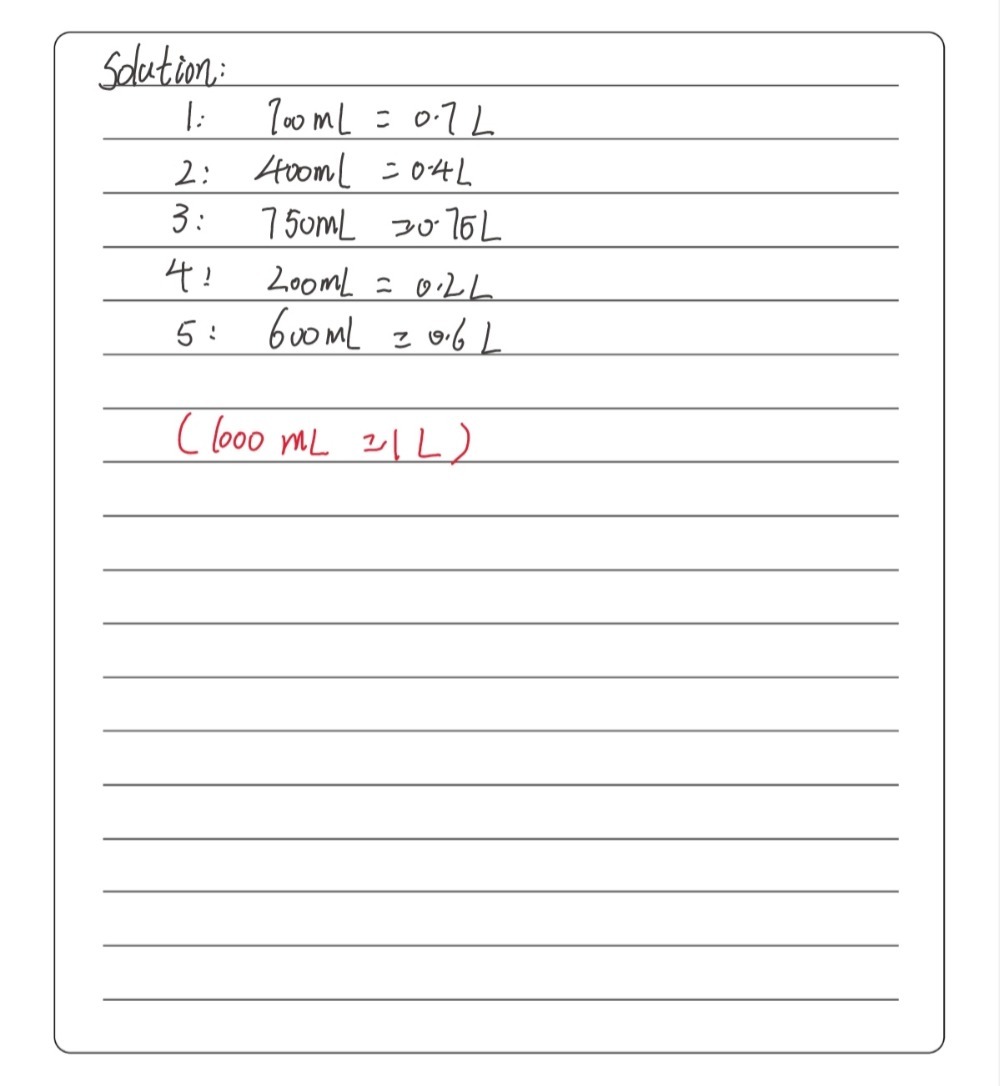 Solution:
1: 700 mL = 0.7 L
2: 400mL = 0.4L
3: 750mL = 0.75L
4: 200mL = 0.2L
5: 600mL = 0.6 L
(1000 mL = 1 L)